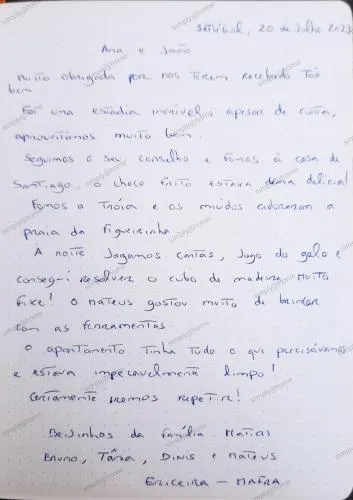 Setúbal, 20 de Julho 2023
Ana e João
Muito obrigada por nos terem recebido tão
bem.
Foi uma estadia incrível, apesar de curta,
aproveitamos muito bem.
Seguimos o seu conselho e fomos à casa de
Santiago, o choco frito estava uma delicia!
Fomos a Tróia e os miúdos adoraram a
praia da Figueirinha.
À noite jogamos cartas, jogo do galo e
consegui resolver o cubo de madeira muito
fixe! O Mateus gostou muito de brincar
com as ferramentas.
O apartamento tinha tudo o que precisávamos
e estava impecavelmente limpo!
Certamente iremos repetir!
Beijinhos da família Matias
Bruno, Tânia, Dinis e Mateus
Ericeira - Mafra
simply@home